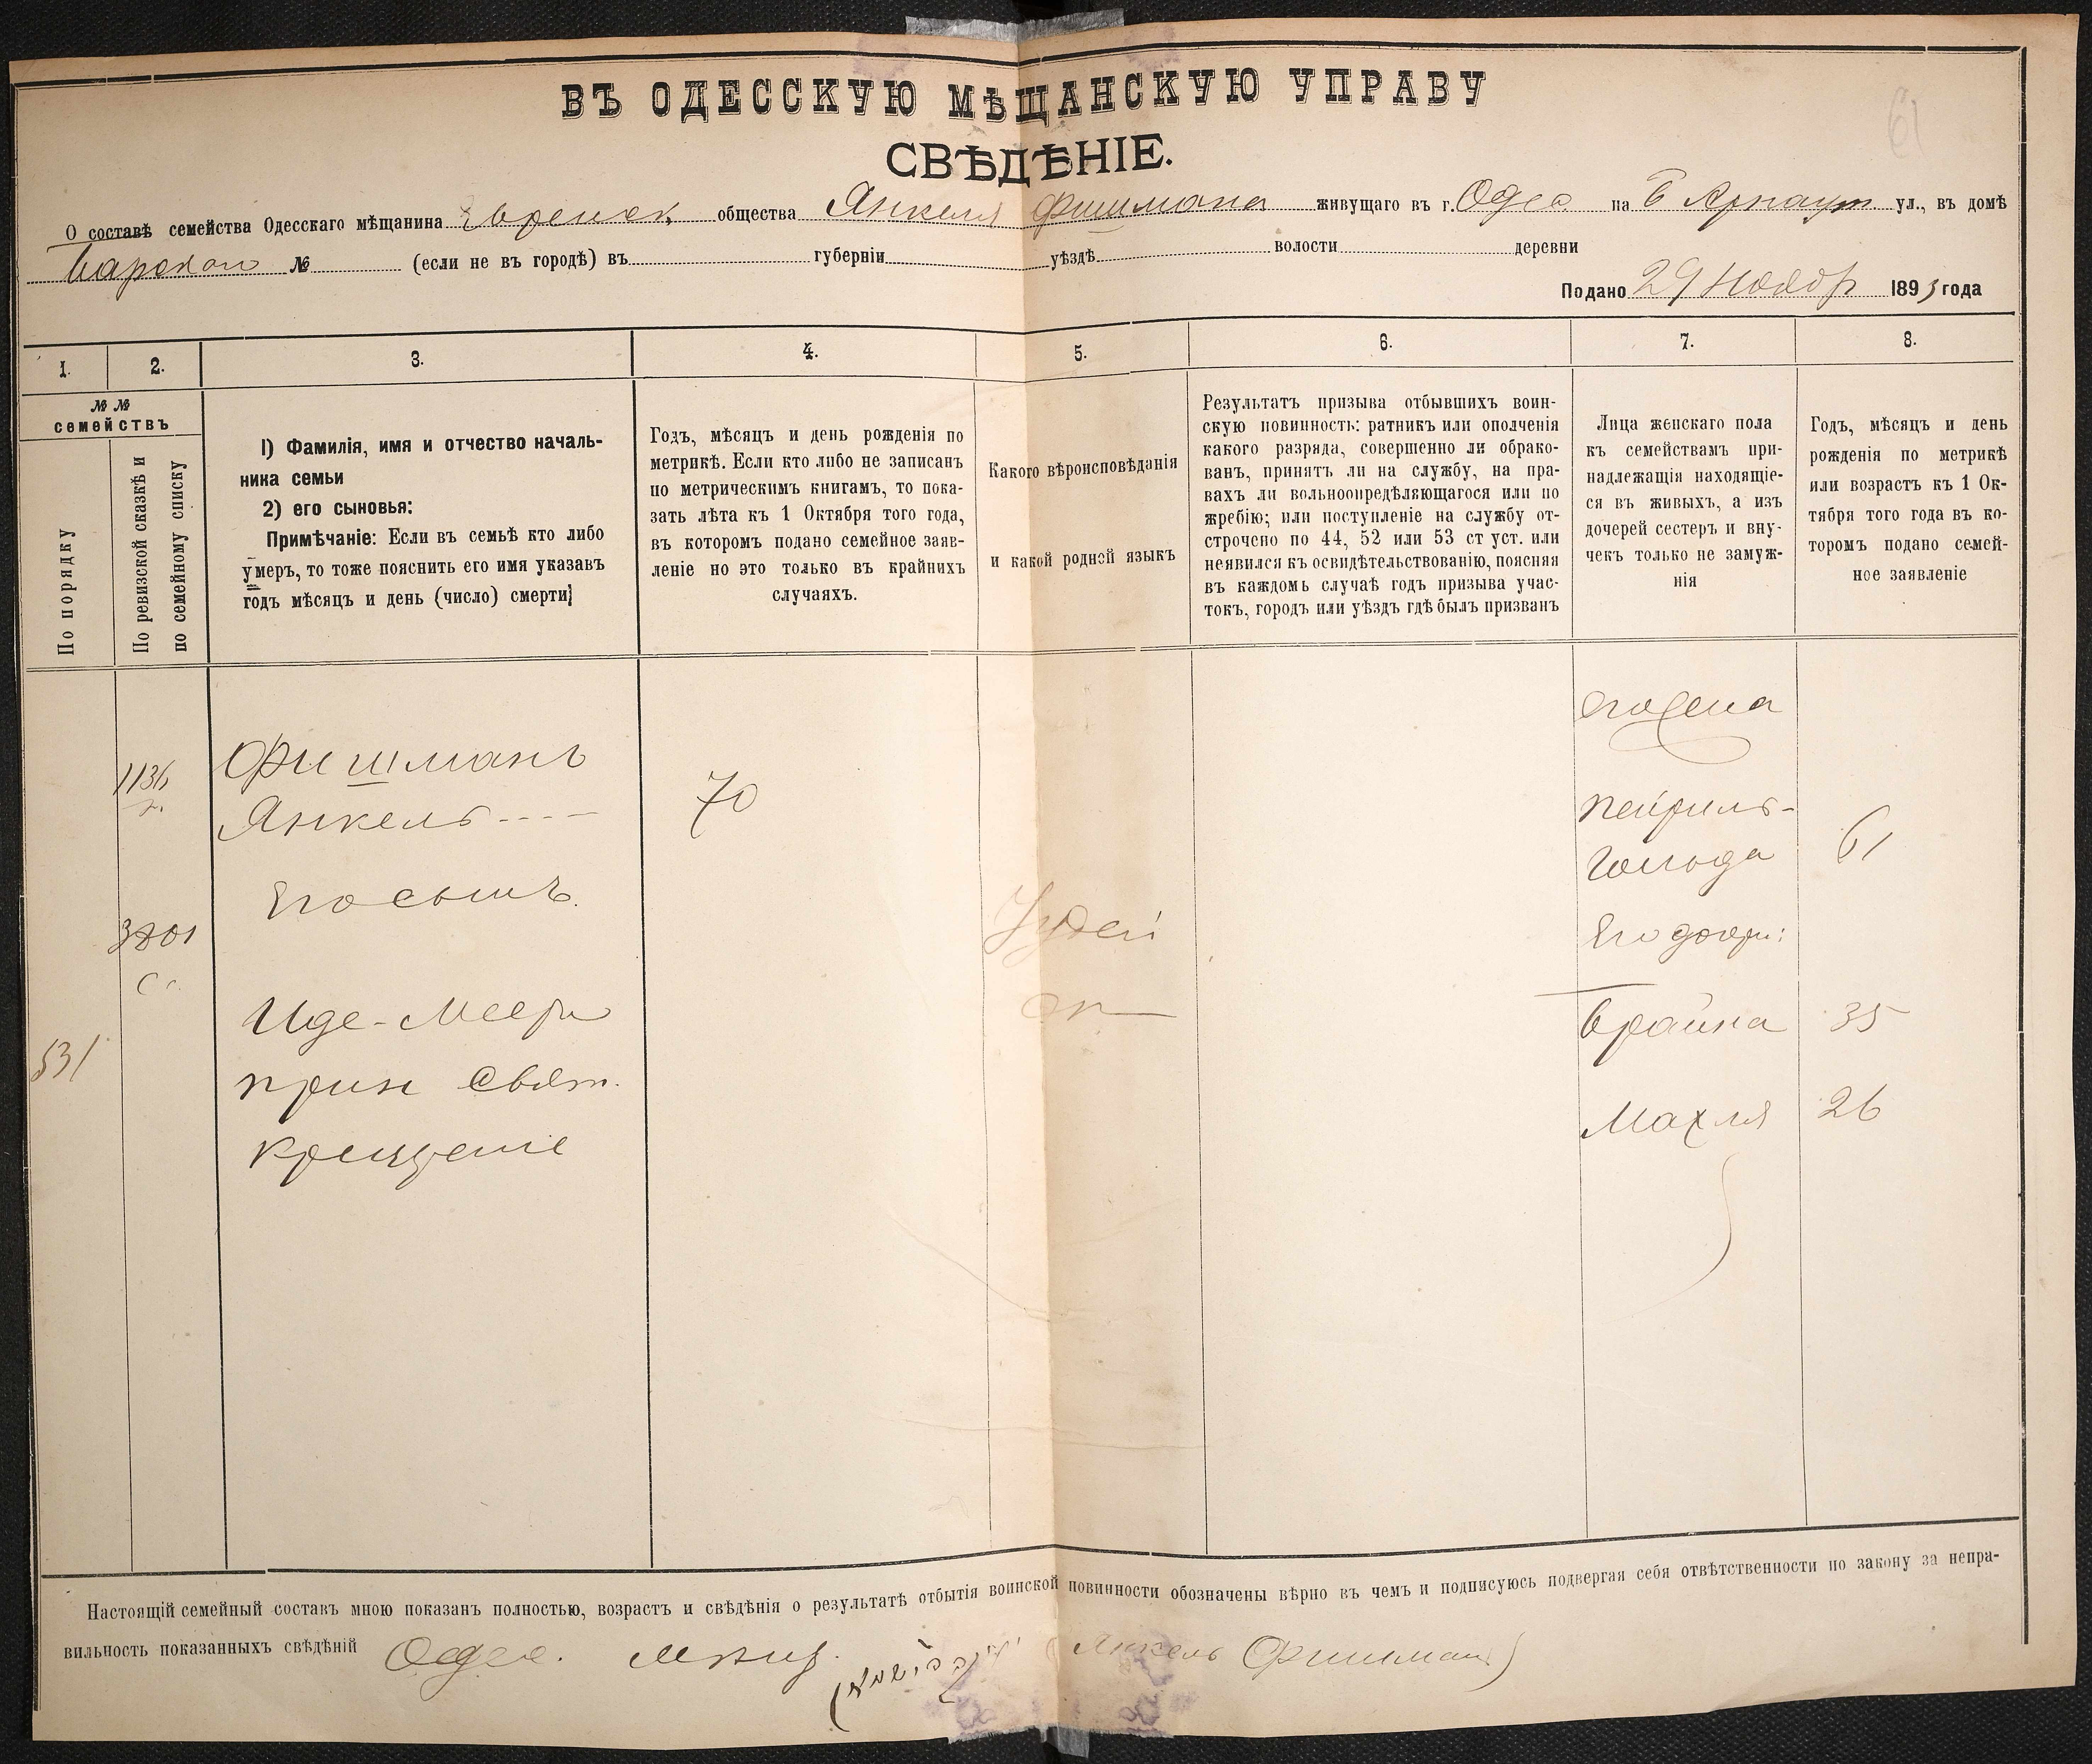 61
ВЪ ОДЕССКУЮ МѢЩАНСКУЮ УПРАВУ
СВѢДѢНІЕ.
О составѣ семейства Одесскаго мѣщанина Еврейск. общества Янкеля Фишмана живущаго въ г. Одес. на Б Арнаут. ул., въ домѣ
Барскаго № (если не въ городѣ) въ губерніи уѣздѣ волости деревни
Подано 29 Ноябр 1893 года
1. 2. 3. 4. 5. 6. 7. 8.
№ №
семействъ
По порядку
По ревизской сказкѣ и
по семейному списку
1) Фамилія, имя и отчество началь-
ника семьи
2) его сыновья:
Примѣчаніе: Если въ семьѣ кто либо
умеръ, то тоже пояснить его имя указавъ
годъ мѣсяцъ и день (число) смерти
Годъ, мѣсяцъ и день рожденія по
метрикѣ. Если кто либо не записанъ
по метрическимъ книгамъ, то пока-
зать лѣта къ 1 Октября того года,
въ которомъ подано семейное заяв-
леніе но это только въ крайнихъ
случаяхъ.
Какого вѣроисповѣданія
и какой родной языкъ
Результатъ призыва отбывшихъ воин-
скую повинность: ратникъ или ополченія
какого разряда, совершенно ли обрако-
ванъ, принятъ ли на службу, на пра-
вахъ ли вольноопредѣляющагося или по
жребію; или поступленіе на службу от-
строчено по 44, 52 или 53 ст уст. или
неявился къ освидѣтельствованію, поясняя
въ каждомъ случаѣ годъ призыва учас-
токъ, городъ или уѣздъ гдѣ былъ призванъ
Лица женскаго пола
къ семействамъ при-
надлежащія находящіе-
ся въ живыхъ, а изъ
дочерей сестеръ и вну-
чекъ только не замуж-
нія
Годъ, мѣсяцъ и день
рожденія по метрикѣ
или возрастъ къ 1 Ок-
тября того года въ ко-
торомъ подано семей-
ное заявленіе
1136
3801
531
Фишманъ
Янкель
Его сынъ.
Иде-Меер
прин Свят.
крещеніе
70
Іудей
его жена
Пейриль-
Гольда 61
Его дочери:
Брайна 35
Махля 26
Настоящій семейный составъ мною показанъ полностью, возрастъ и свѣдѣнія о результатѣ отбытія воинской повинности обозначены вѣрно въ чемъ и подписуюсь подвергая себя отвѣтственности по закону за непра-
вильность показанныхъ свѣдѣній Одес. Мѣщ. (Янкель Фишман)